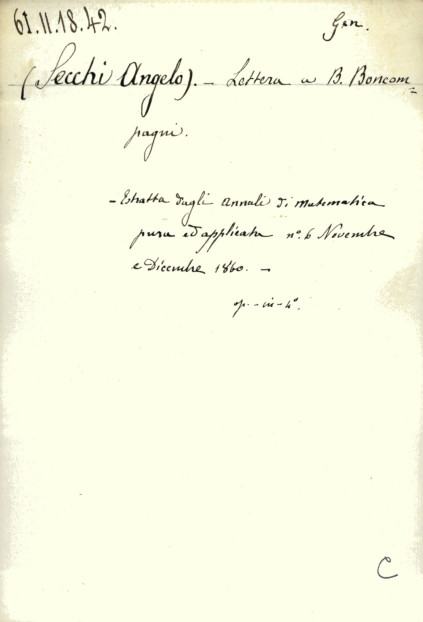 61.II.18.42.
Gen.
(Secchi Angelo). - Lettera a B. Boncom=
pagni.
- Estratta dagli Annali di Matematica
pura ed applicata nº. 6 Novembre
e Dicembre 1860. -
op. - in - 4º.
C